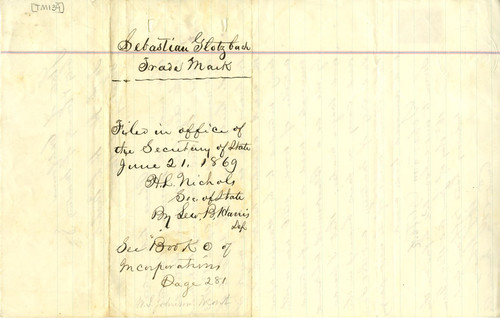 [TM134]
Sebastian Glotzbach
Trade Mark
Filed in office of
the Secretary of State
June 21, 1869
H.L. Nichols
Sec of State
By Lew. B. Harris
Dep
See Book C of
Incorporations
Page 281